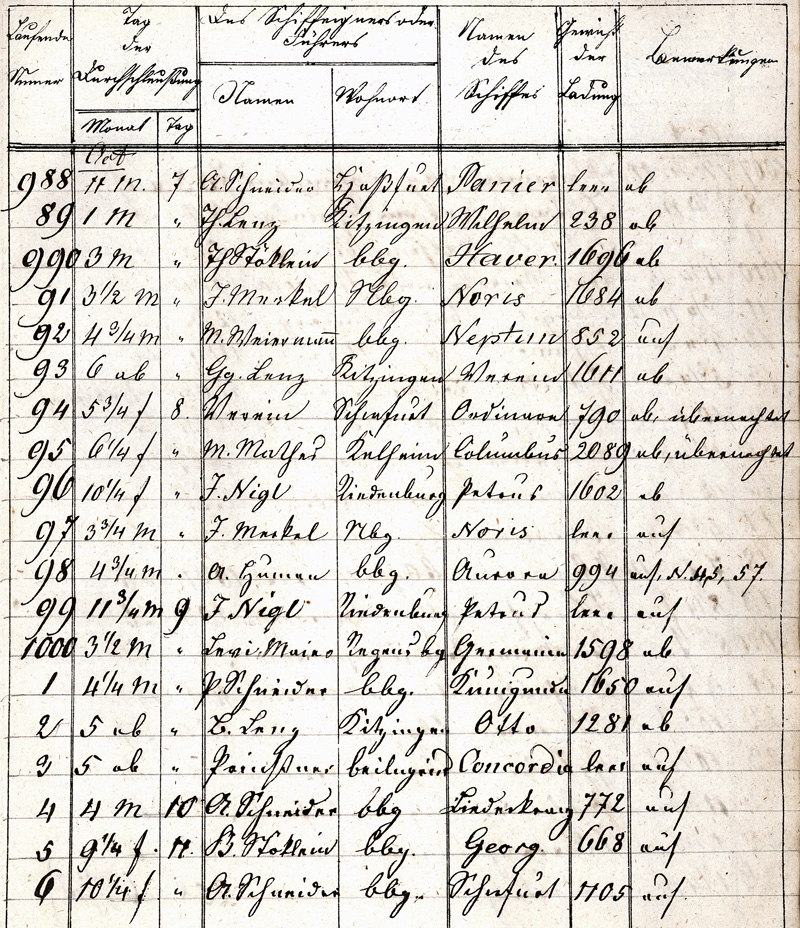 Laufende Numer
Tag der Durchschleußung
Des Schiffeigners oder Führers
Namen des Schiffes
Gewicht der Ladung
Bemerkungen
Monat Tag Namen Wohnort
Oct
988 11 M. 7 A. Schneider Haßfurt Banier leer ab
89 1 M " Th. Lenz Kitzingen Wilhelm 238 ab
990 3 M " Th Stöklein bbg. Haver. 1696 ab
91 3½ M " J. Merkel Nbg. Noris 1684 ab
92 4¾ M " M. Weiermann bbg. Neptun 852 auf
93 6 ab " Gg. Lenz Kitzingen Verein 1611 ab
94 5¾ f 8. Verein Schwfurt Ordinare 790 ab, übernachtet
95 6¼ f " M. Mathes Kelheim Columbus 2089 ab, übernachtet
96 10¼ f " J. Nigl Riedenburg Petrus 1602 ab
97 3¾ M " J. Merkel Nbg. Noris leer auf
98 4¾ M " A. Human bbg. Aurora 994 auf, N. 45, 57.
99 11¾ M 9 J Nigl Riedenburg Petrus leer auf
1000 3½ M " Levi Maier Regensbg Germania 1598 ab
1 4¼ M " P. Schneider bbg. Kunigunda 1650 auf
2 5 ab " B. Lenz Kitzingen Otto 1281 ab
3 5 ab " beilngries Concordia leer auf
4 4 M 10 A. Schneider bbg Liederkranz 772 auf
5 9¼ f. 11. B. Stöklein bbg. Georg. 668 auf
6 10¼ f. " A. Schneider bbg. Schwfurt 1105 auf